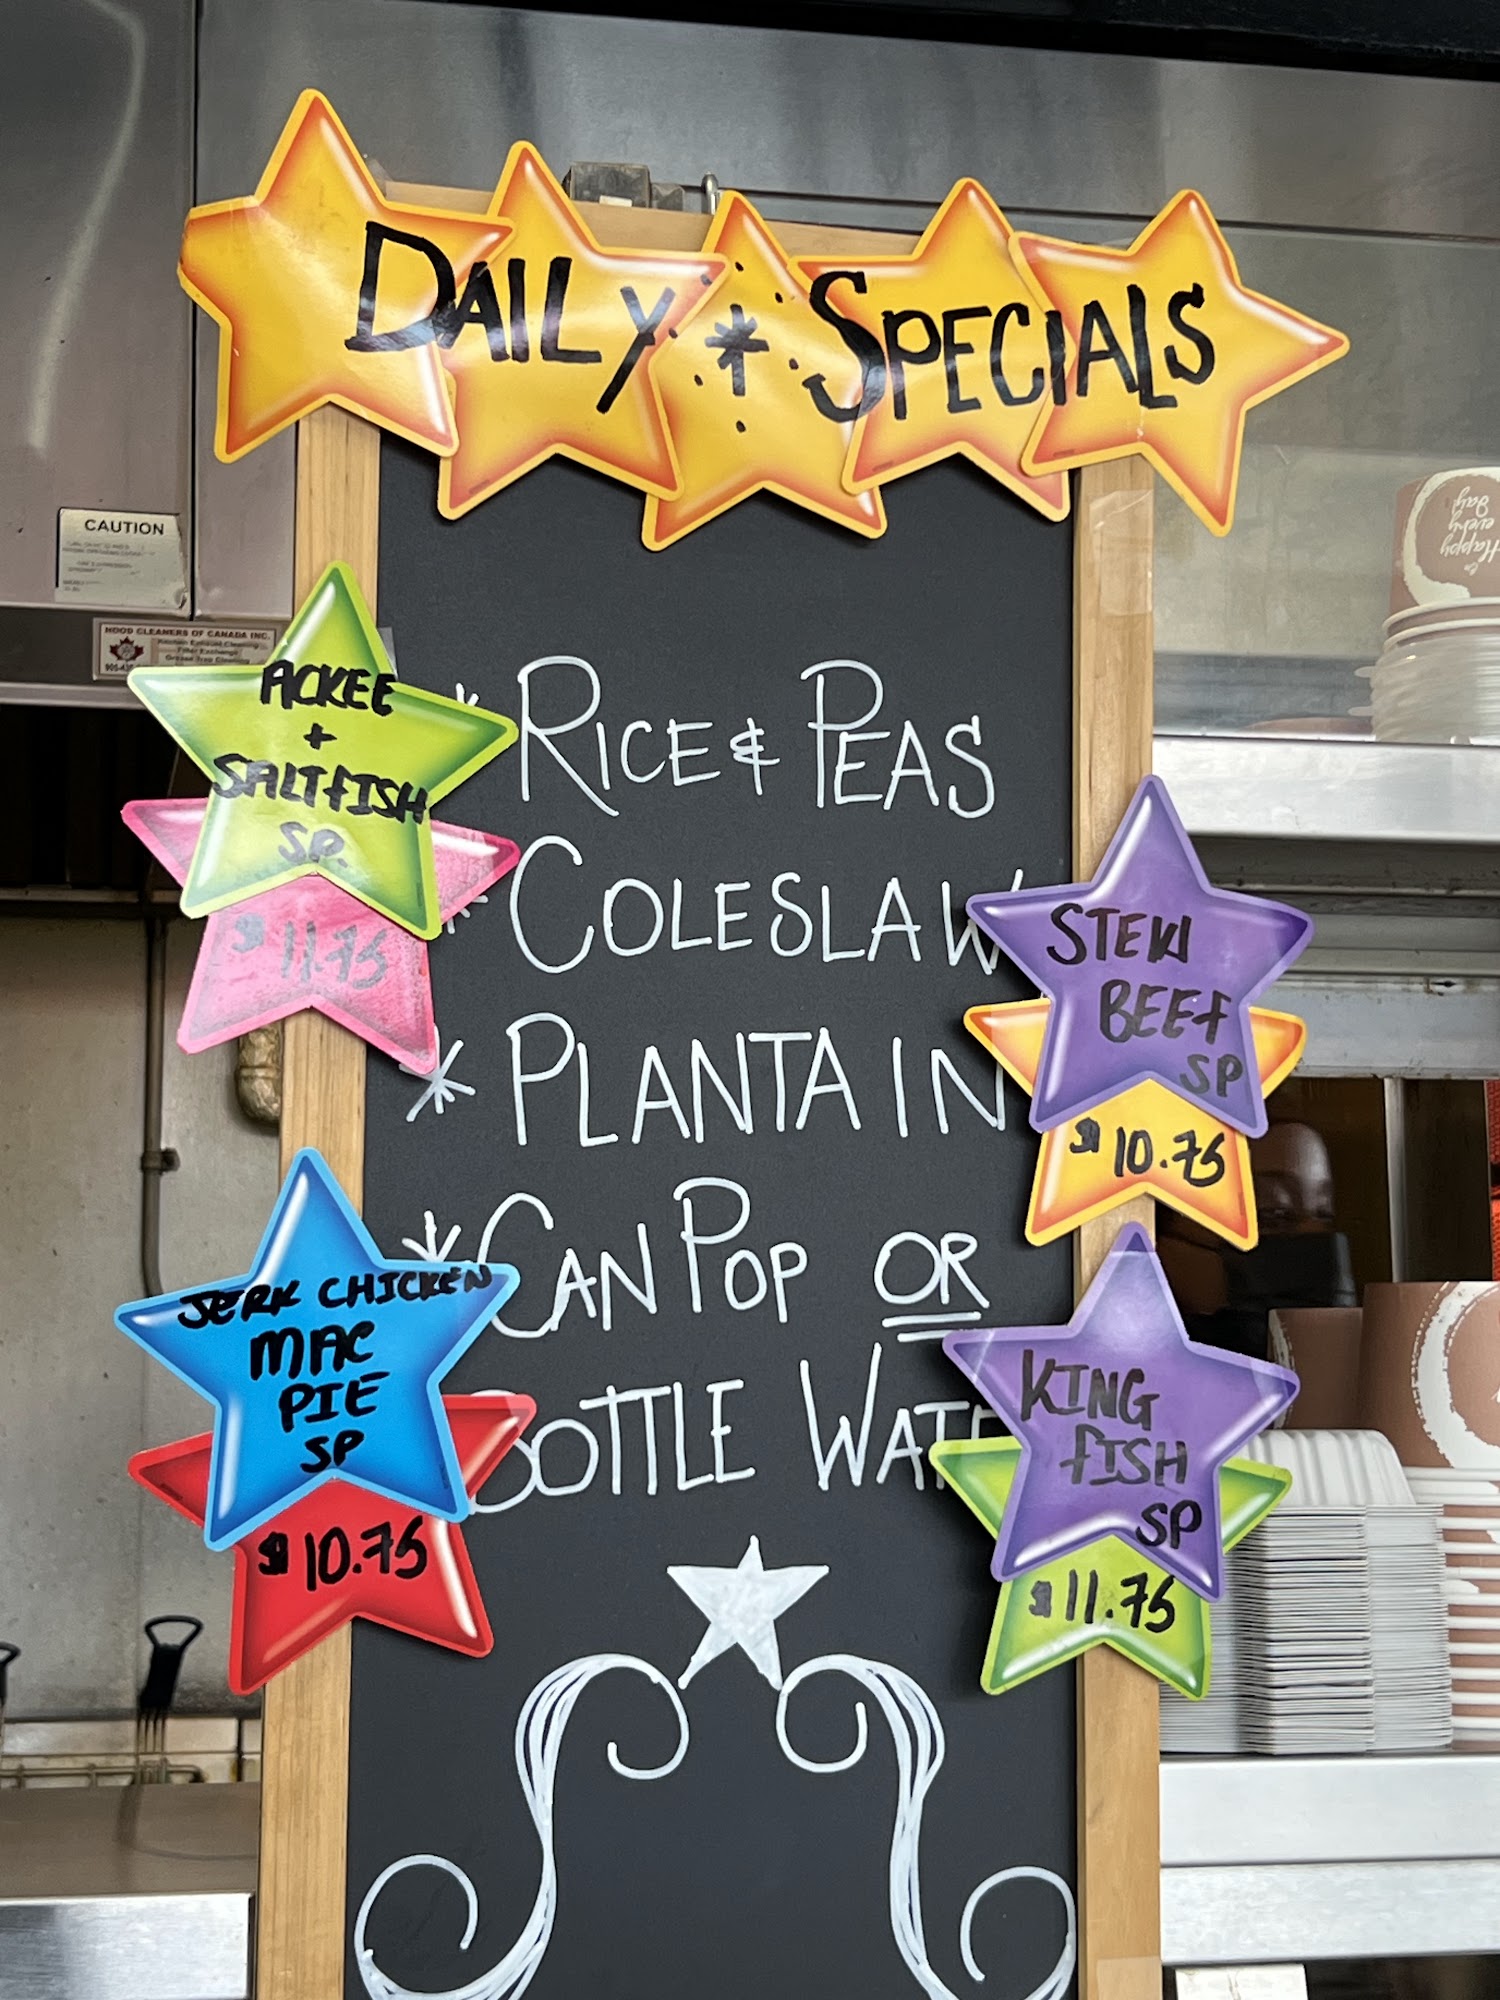 DAILY * SPECIALS
CAUTION
HOOD CLEANERS OF CANADA INC.
Kitchen Exhaust Cleaning
Filter Exchange
Grease Trap Cleaning
ACKEE
+
SALTFISH
SP.
$11.75
* RICE & PEAS
* COLESLAW
* PLANTAIN
* CAN POP OR
BOTTLE WATE
STEW
BEEF
SP
$10.75
JERK CHICKEN
MAC
PIE
SP
$10.75
KING
FISH
SP
$11.75
Happy
every
day!